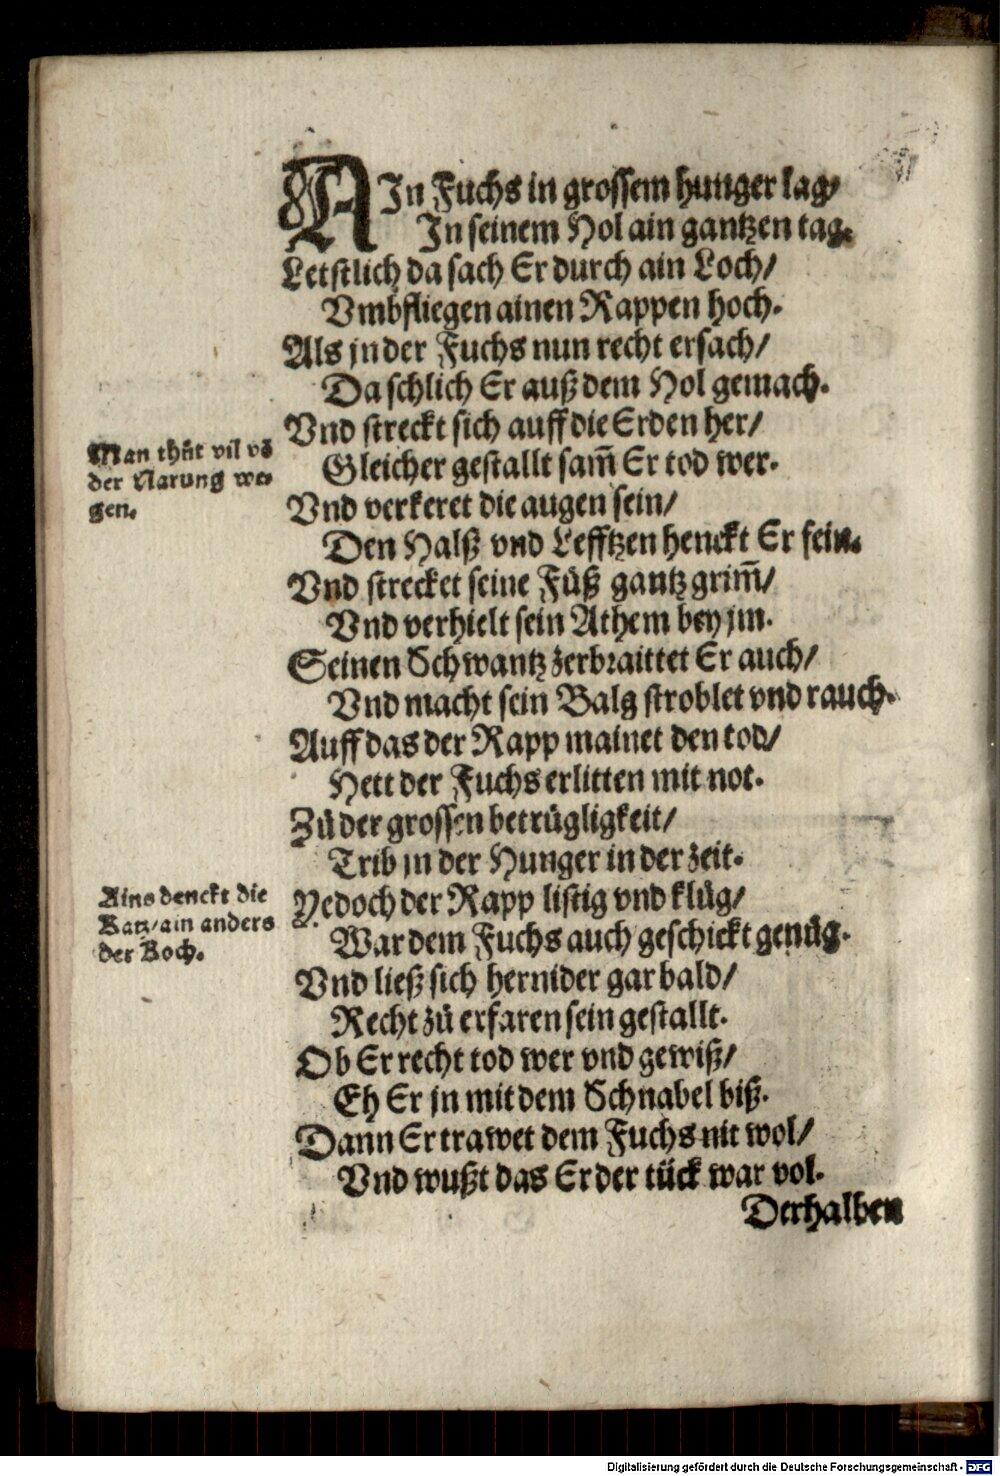 AJn Fuchs in grossem hunger lag/
Jn seinem Hol ain gantzen tag.
Letstlich da sach Er durch ain Loch/
Vmbfliegen ainen Rappen hoch.
Als jn der Fuchs nun recht ersach/
Da schlich Er auß dem Hol gemach.
Vnd streckt sich auff die Erden her/
Man thůt vil võ
der Narung we-
gen.
Gleicher gestallt sam̃ Er tod wer.
Vnd verkeret die augen sein/
Den Halß vnd Lefftzen henckt Er fein.
Vnd strecket seine Füß gantz grim̃/
Vnd verhielt sein Athem bey jm.
Seinen Schwantz zerbraittet Er auch/
Vnd macht sein Balg stroblet vnd rauch.
Auff das der Rapp mainet den tod/
Hett der Fuchs erlitten mit not.
Zů der grossen betrügligkeit/
Trib jn der Hunger in der zeit.
Ains denckt die
Katz/ain anders
der Koch.
Yedoch der Rapp listig vnd klůg/
War dem Fuchs auch geschickt genůg.
Vnd ließ sich hernider gar bald/
Recht zů erfaren sein gestallt.
Ob Er recht tod wer vnd gewiß/
Eh Er jn mit dem Schnabel biß.
Dann Er trawet dem Fuchs nit wol/
Vnd wußt das Er der tück war vol.
Derhalben
Digitalisierung gefördert durch die Deutsche Forschungsgemeinschaft - DFG